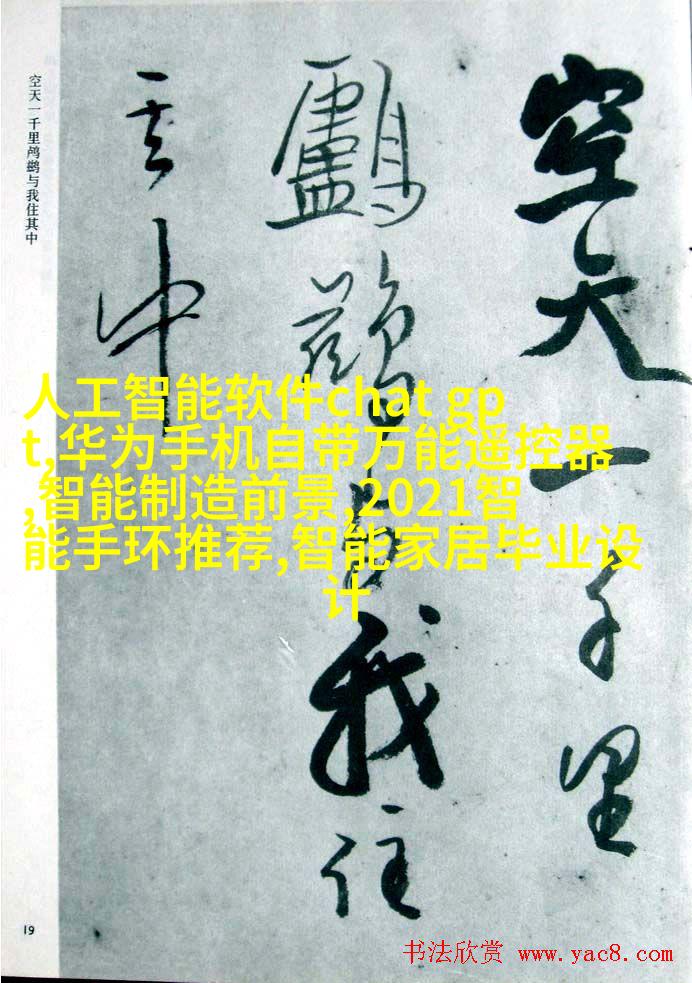 空天一千里
鸕鷀与我住
其中
空天一千里鸬鹚与我住其中
人工智能软件chat gp
t,华为手机自带万能遥控器
,智能制造前景,2021智
能手环推荐,智能家居毕业设
计
19
书法欣赏 www.yac8.com